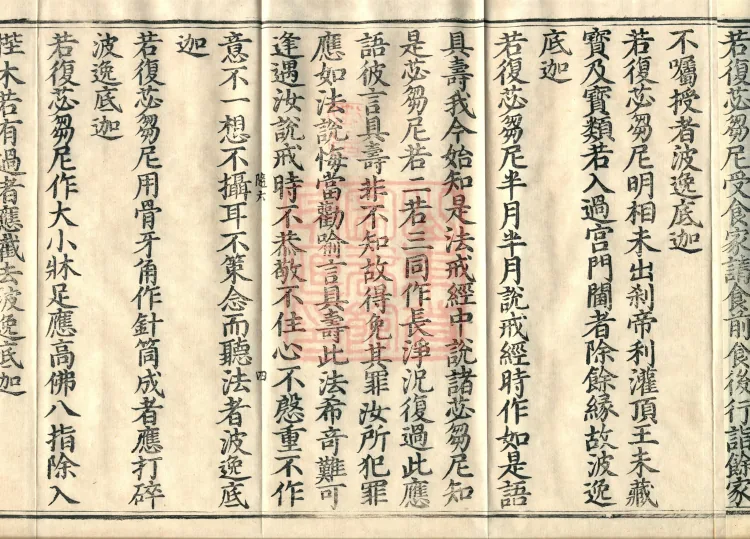 若復苾芻尼受食家請食前食後行詣餘家
不囑授者波逸底迦
若復苾芻尼明相未出刹帝利灌頂王未藏
寶及寶類若入過宮門閫者除餘緣故波逸
底迦
若復苾芻尼半月半月說戒經時作如是語
具壽我今始知是法戒經中說諸苾芻尼知
是苾芻尼若二若三同作長淨況復過此應
語彼言具壽非不知故得免其罪汝所犯罪
應如法說悔當勸喻言具壽此法希奇難可
逢遇汝說戒時不恭敬不住心不慇重不作
意不一想不攝耳不策念而聽法者波逸底
隨六 四
迦
若復苾芻尼用骨牙角作針筒成者應打碎
波逸底迦
若復苾芻尼作大小牀足應高佛八指除入
梐木若有過者應截去波逸底迦